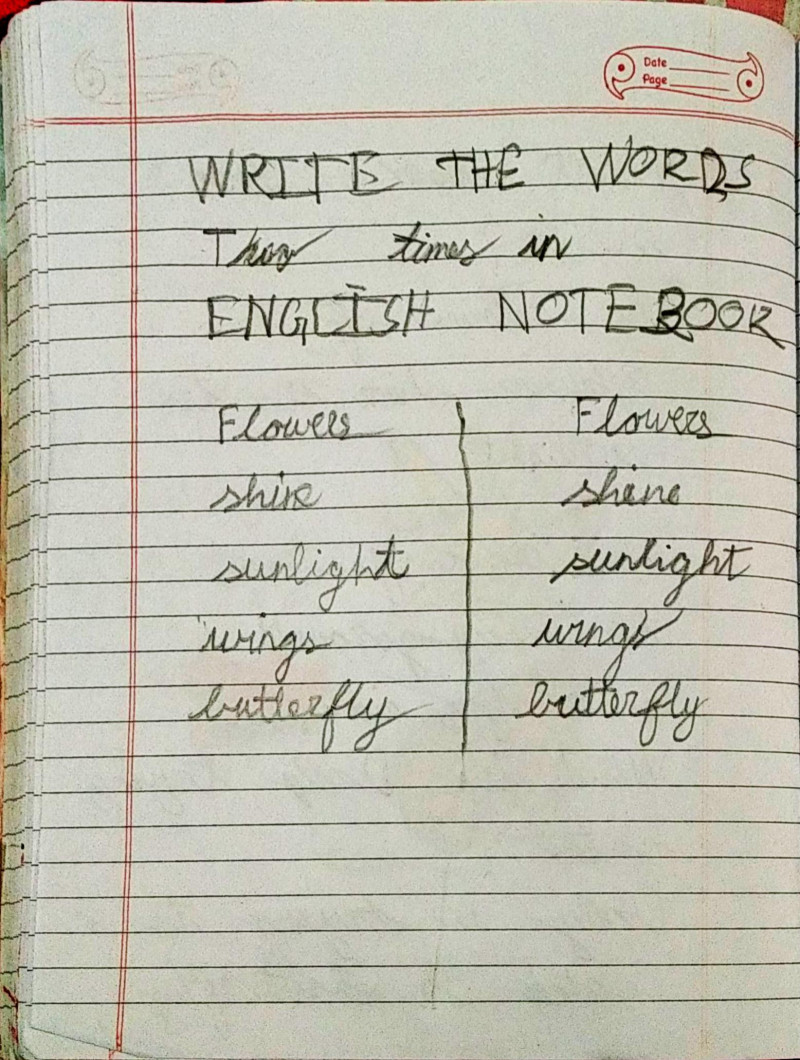 Date
Page
WRITE THE WORDS
times in
ENGLISH NOTEBOOK
Flowers Flowers
shine shene
sunlight sunlight
wings wings
butterfly butterfly